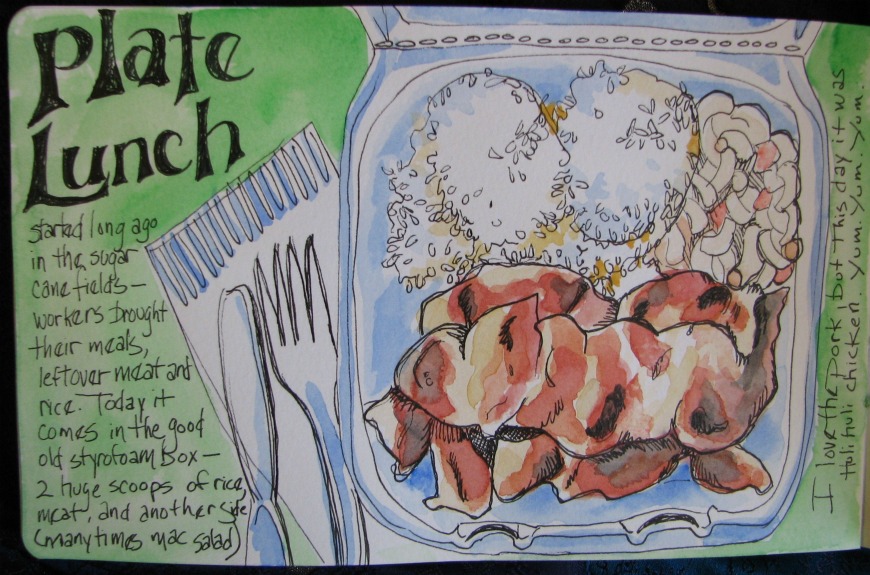 Plate
Lunch
started long ago
in the sugar
cane fields—
workers brought
their meals,
leftover meat and
rice. Today it
comes in the good
old styrofoam box—
2 huge scoops of rice,
meat, and another side
(many times mac salad)
I love the pork but this day it was
huli huli chicken. Yum. Yum. Yum.